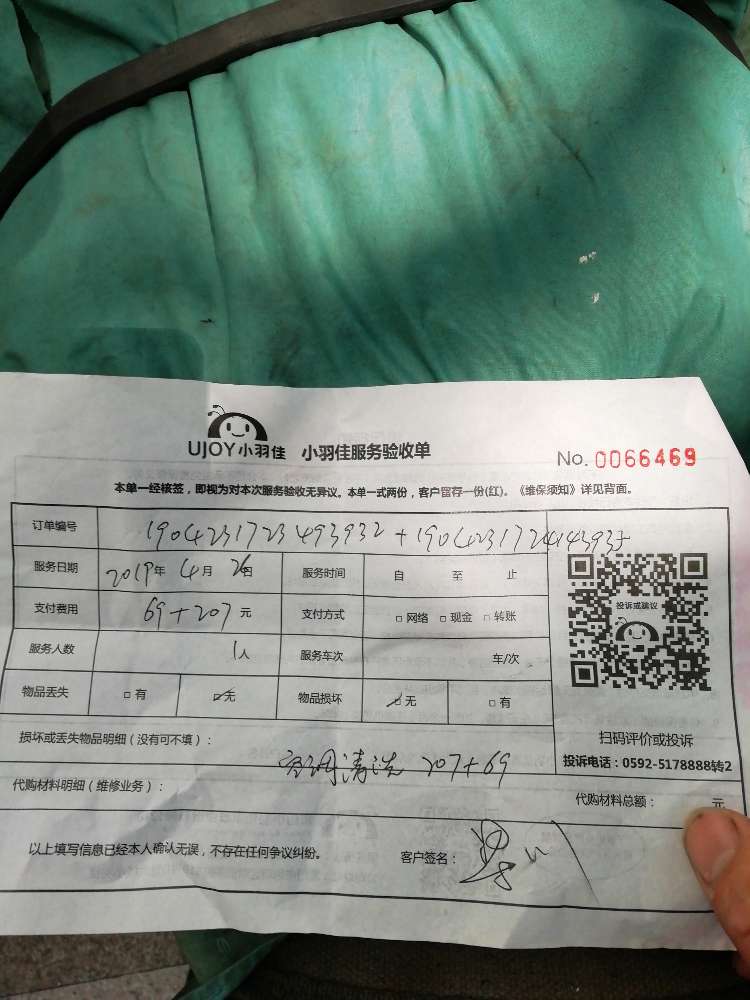 UJOY小羽佳 小羽佳服务验收单
No. 0066469
本单一经核签，即视为对本次服务验收无异议。本单一式两份，客户留存一份(红)。《维保须知》详见背面。
订单编号 190423172349393​2 + 19042317241​4393
服务日期 2019年 4月 26日 服务时间 自 至 止
支付费用 69+207 元 支付方式 □ 网络 □ 现金 □ 转账
投诉或建议
服务人数 1人 服务车次 车/次
物品丢失 □ 有 ☑ 无 物品损坏 ☑ 无 □ 有
扫码评价或投诉
损坏或丢失物品明细（没有可不填）：
投诉电话：0592-5178888转2
空调清洗 207+69
代购材料明细（维修业务）： 代购材料总额： 元
以上填写信息已经本人确认无误，不存在任何争议纠纷。 客户签名：